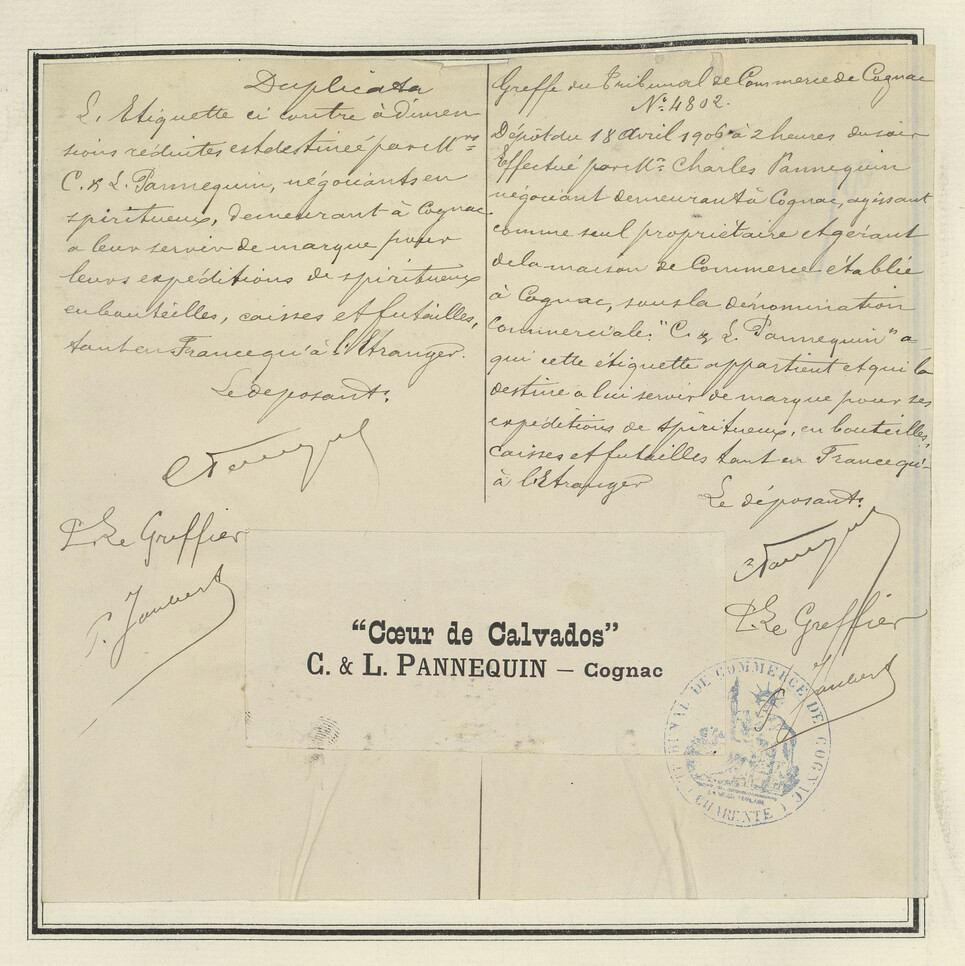 Duplicata
L. Etiquette ci contre à dimen-
sions réduites est destinée par Mrs
C. & L. Pannequin, négociants en
spiritueux, demeurant à Cognac
a leur servir de marque pour
leurs expéditions de spiritueux
en bouteilles, caisses et futailles,
tant en France qu'à l'Etranger.
Le déposant:
P. Le Greffier
P. Joubert
Greffe du Tribunal de Commerce de Cognac
No. 4802.
Dépôt du 18 Avril 1906 à 2 heures du soir
Effectué par Mr. Charles Pannequin
négociant demeurant à Cognac, agissant
comme seul propriétaire et gérant
de la maison de Commerce établie
à Cognac, sous la dénomination
Commerciale: "C. & L. Pannequin" a
qui cette étiquette appartient et qui la
destine a lui servir de marque pour ses
expéditions de spiritueux, en bouteilles,
caisses et futailles tant en France qu'
à l'Etranger
Le déposant:
P. Le Greffier
P. Joubert
"Cœur de Calvados"
C. & L. PANNEQUIN – Cognac
TRIBUNAL DE COMMERCE DE COGNAC
(CHARENTE)